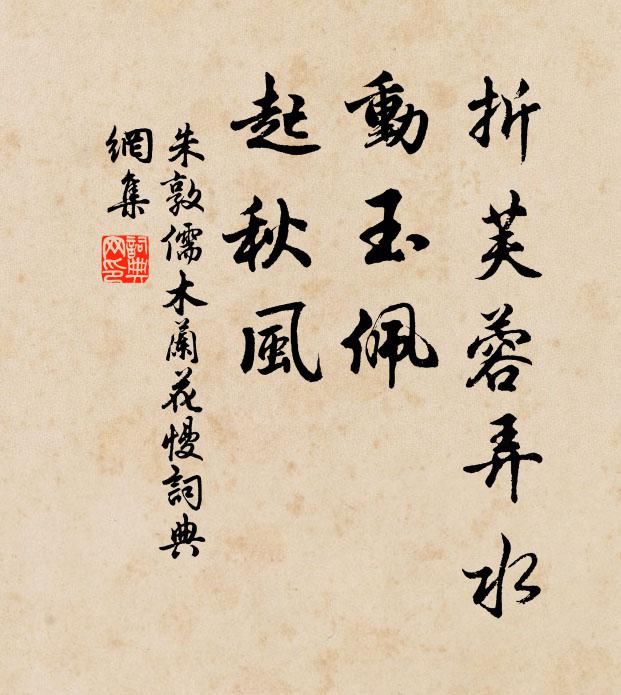 折芙蓉弄水
動玉佩
起秋風
朱敦儒木蘭花慢詞典
網集
詞典
网印